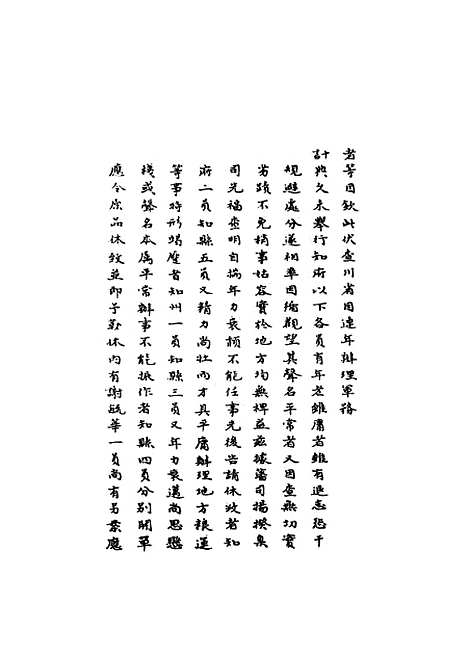 者等因欽此伏查川省因連年辦理軍務
計典久未舉行知府以下各員有年老雖庸者雖有退志恐干
規避處分遂相率因循觀望其聲名平常者又因查無切實
劣蹟不免稍事姑容實於地方均無裨益茲據藩司揚揆臬
司先福查明自揣年力衰頹不能任事先後告請休致者知
府二員知縣五員又精力尚壯而才具平庸辦理地方糧運
等事特形竭蹷者知州一員知縣三員又年力衰邁尚思戀
棧或聲名本屬平常辦事不能振作者知縣四員分別開單
應令原品休致並即予勒休內有謝毓華一員尚有另案應